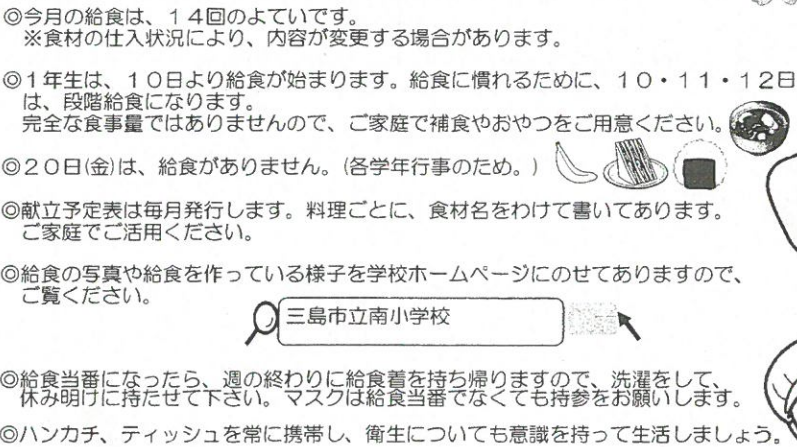 ◎今月の給食は、１４回のよていです。
※食材の仕入状況により、内容が変更する場合があります。
◎１年生は、１０日より給食が始まります。給食に慣れるために、１０・１１・１２日
は、段階給食になります。
完全な食事量ではありませんので、ご家庭で補食やおやつをご用意ください。
◎２０日(金)は、給食がありません。(各学年行事のため。)
◎献立予定表は毎月発行します。料理ごとに、食材名をわけて書いてあります。
ご家庭でご活用ください。
◎給食の写真や給食を作っている様子を学校ホームページにのせてありますので、
ご覧ください。
三島市立南小学校
◎給食当番になったら、週の終わりに給食着を持ち帰りますので、洗濯をして、
休み明けに持たせて下さい。マスクは給食当番でなくても持参をお願いします。
◎ハンカチ、ティッシュを常に携帯し、衛生についても意識を持って生活しましょう。